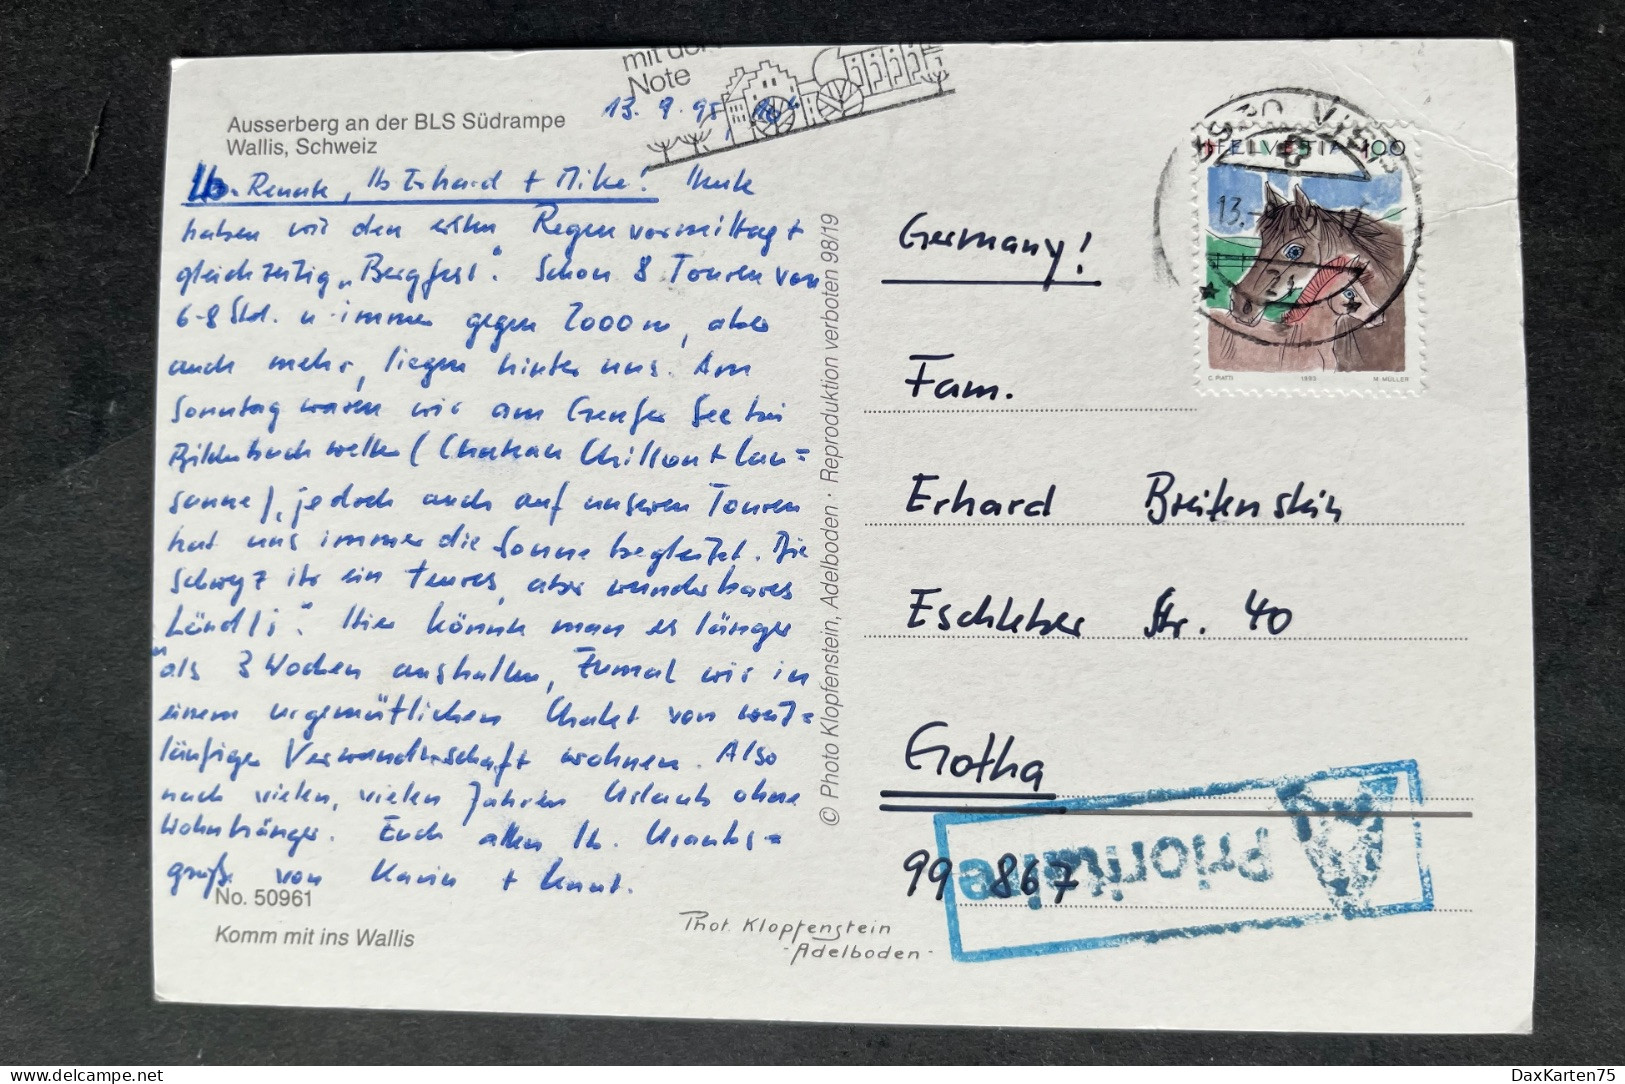 mit der
Note
Ausserberg an der BLS Südrampe
Wallis, Schweiz
13. 9. 95
lb. Renate, lb Erhard + Mike! Heute
haben wir den ersten Regenvormittag +
gleichzeitig „Bergfest". Schon 8 Touren von
6-8 Std. u. immer gegen 2000 m, aber
auch mehr, liegen hinter uns. Am
Sonntag waren wir am Genfer See bei
Bilderbuchwetter (Chateau Chillon + Lau=
sanne), jedoch auch auf unseren Touren
hat uns immer die Sonne begleitet. Die
Schwyz ist ein teures, aber wunderbares
„Ländli". Hier könnte man es länger
als 3 Wochen aushalten, zumal wir in
einem urgemütlichen Chalet von weit=
läufiger Verwandtschaft wohnen. Also
nach vielen, vielen Jahren Urlaub ohne
Wohnhänger. Euch allen lb. Urlaubs=
grüße von Karin + Knut.
No. 50961
Komm mit ins Wallis
© Photo Klopfenstein, Adelboden · Reproduktion verboten 98/19
Phot. Klopfenstein
-Adelboden-
HELVETIA 100
13.-9.95-17
C. PIATTI 1993 M. MÜLLER
Germany!
Fam.
Erhard Breitenstein
Eschleber Str. 40
Gotha
99 867
A Prioritaire
DaxKarten75